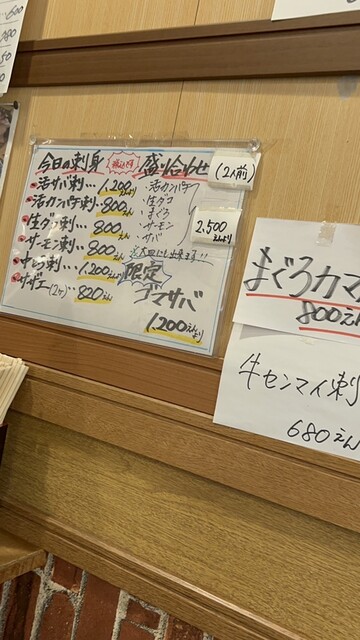 今日の刺身 税込み
活サバ刺…1,200えんより
活カンパチ刺…800えん
生ダコ刺…800えん
サーモン刺…800えん
中とろ刺…1,200えんより
サザエ(2ヶ)…820えん
盛り合わせ(2人前)
・活カンパチ
・生ダコ
・まぐろ
・サーモン
・サバ
2,500えんより
限定
ゴマサバ
1,200えんより
まぐろカマ
800えん
牛センマイ刺
680えん